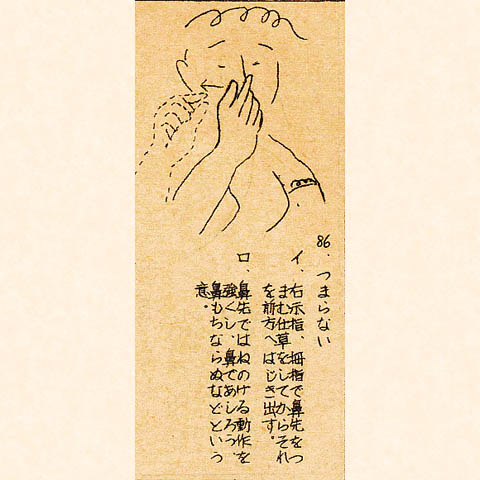 86. つまらない
イ、右示指、拇指で鼻先をつ
まむ仕草をしてからそれ
を前方へはじき出す。
ロ、鼻先ではねのける動作を
強くし、鼻であしろう、
鼻もちならぬなどという
意。